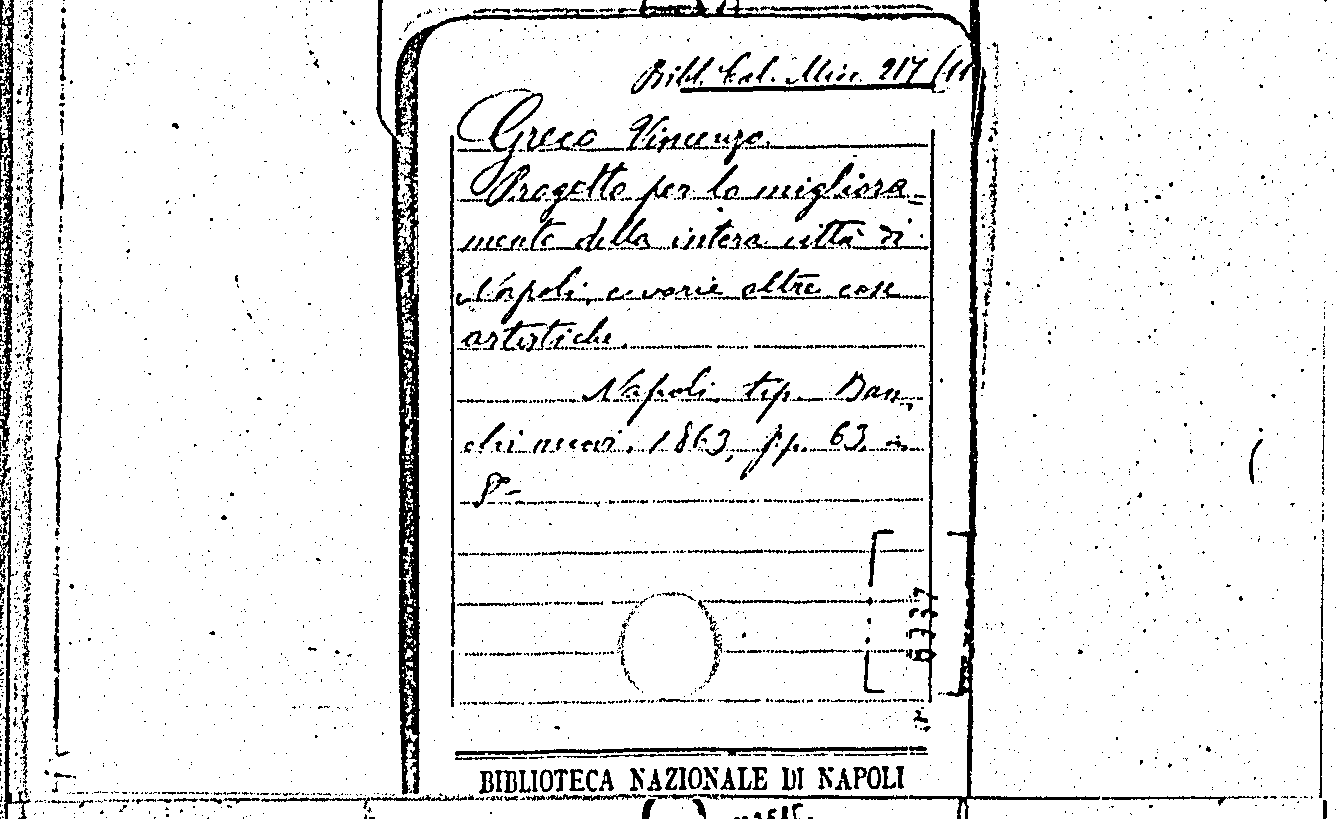 Bibl. Cal. Misc. 217 (11
Greco Vincenzo.
Progetto per lo migliora-
mento della intera città di
Napoli, e varie altre cose
artistiche.
Napoli, tip. Ban-
chi nuovi, 1863, pp. 63 in
8°-
6337
BIBLIOTECA NAZIONALE DI NAPOLI